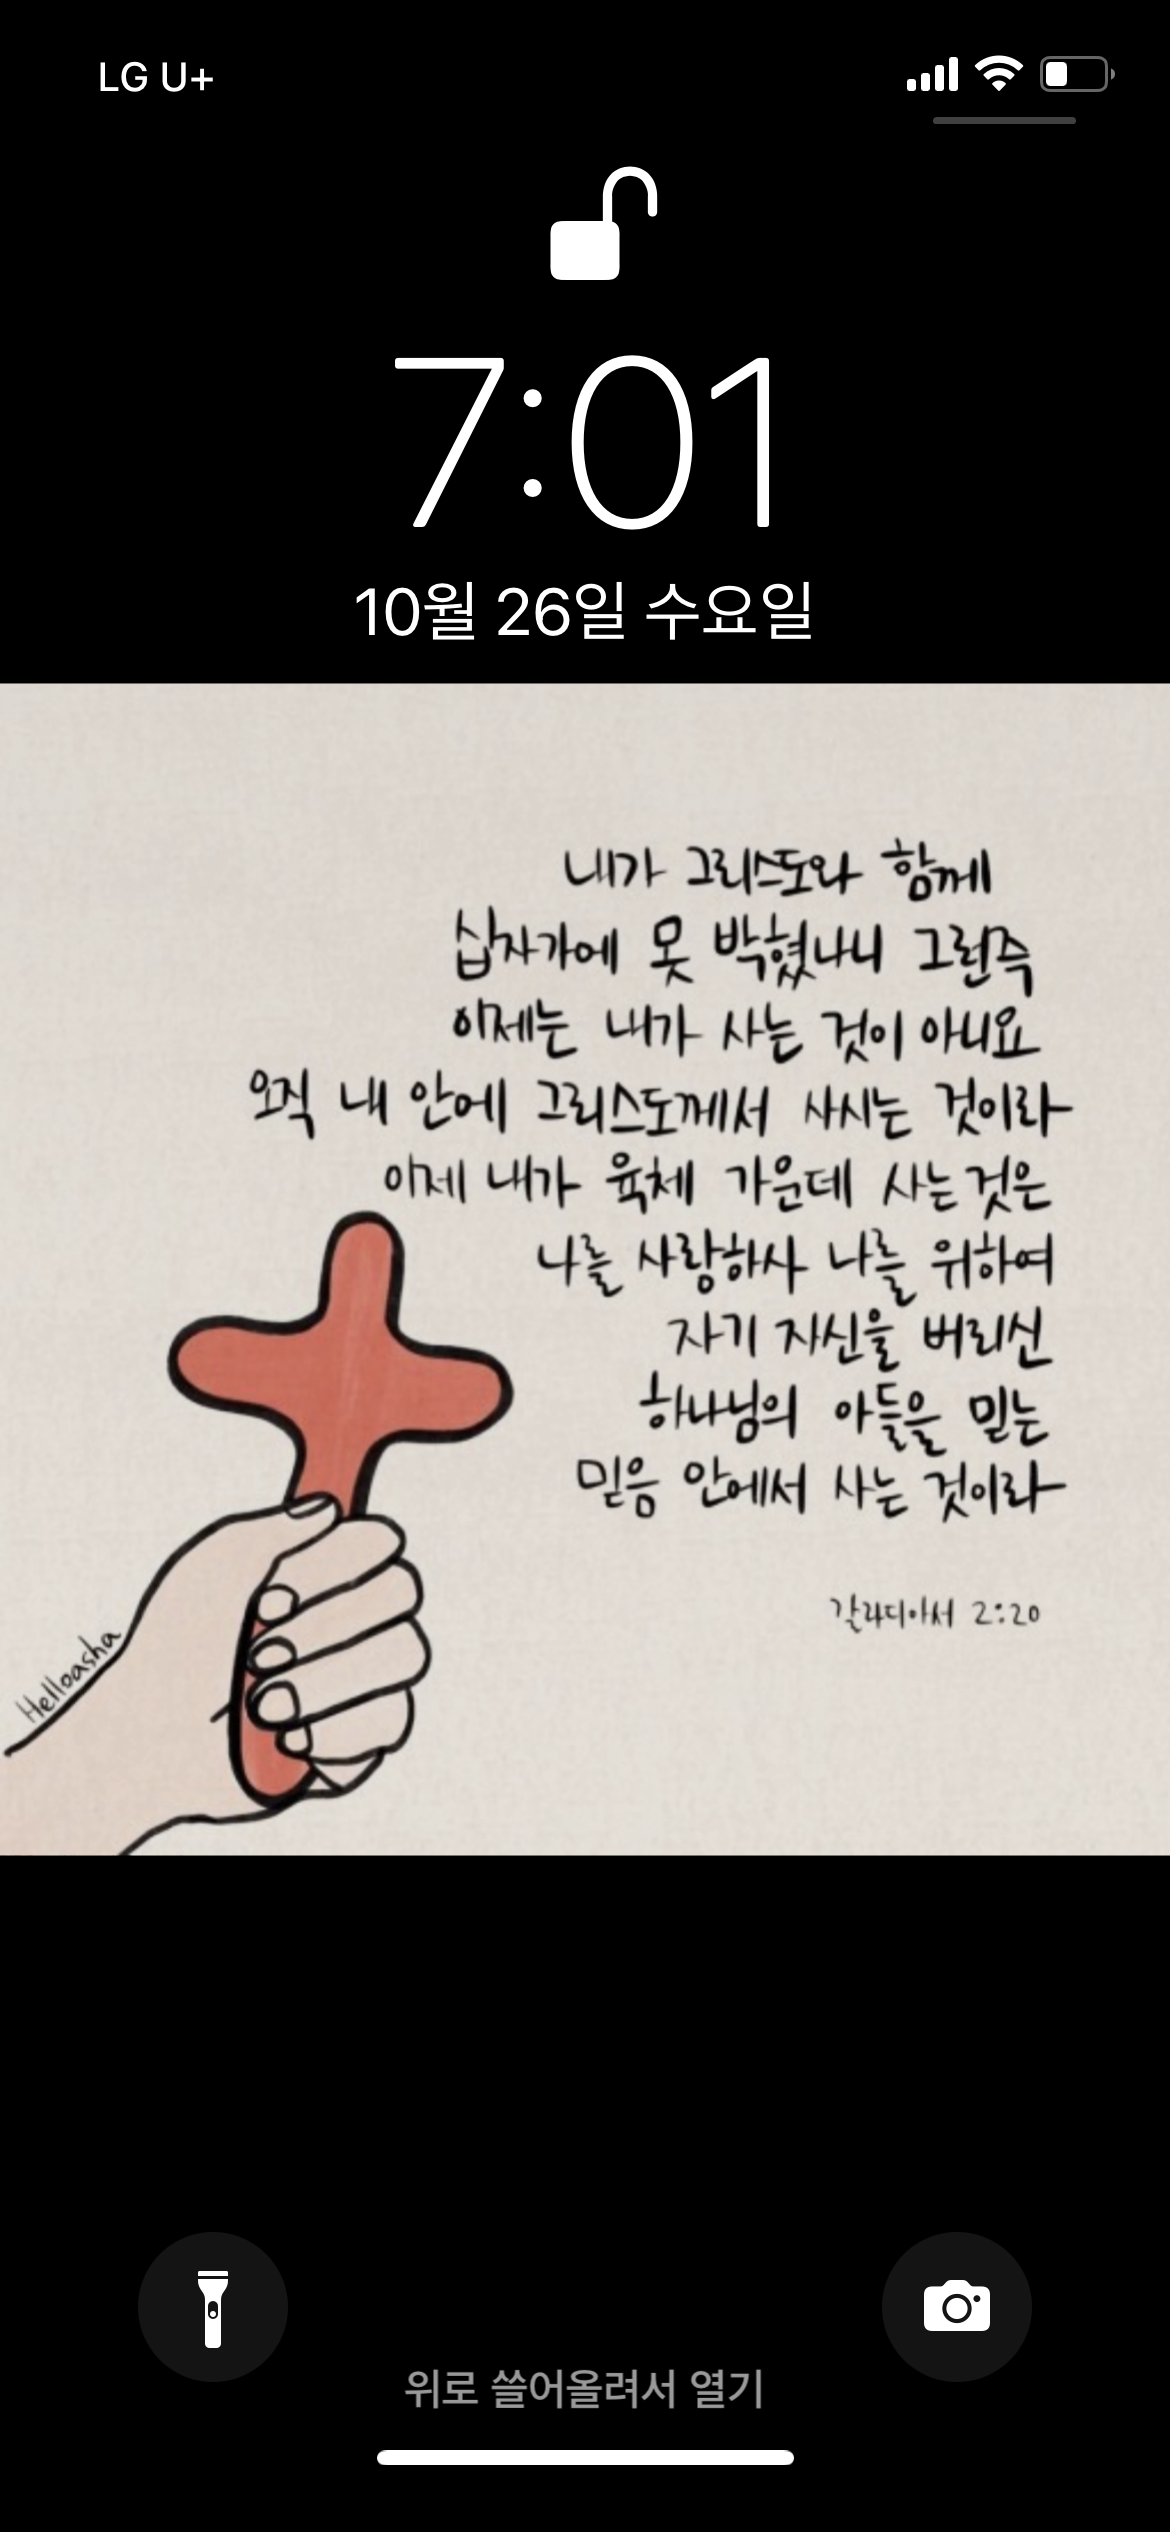 LG U+
7:01
10월 26일 수요일
내가 그리스도와 함께
십자가에 못 박혔나니 그런즉
이제는 내가 사는 것이 아니요
오직 내 안에 그리스도께서 사시는 것이라
이제 내가 육체 가운데 사는 것은
나를 사랑하사 나를 위하여
자기 자신을 버리신
하나님의 아들을 믿는
믿음 안에서 사는 것이라
갈라디아서 2:20
Helloasha
위로 쓸어올려서 열기